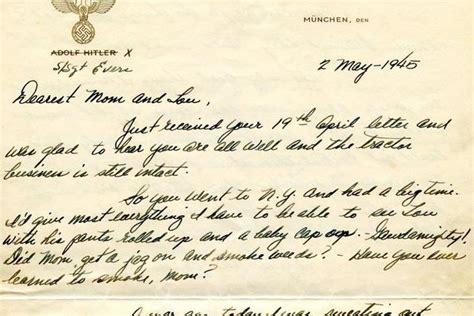 MÜNCHEN, DEN
ADOLF HITLER X
S/Sgt Evers
2 May-1945
Dearest Mom and Lou,
Just received your 19th April letter and
was glad to hear you are all well and the tractor
business is still intact.
So you went to N.Y. and had a big time.
I'd give most everything I have to be able to see Lou
with his pants rolled up and a baby cap on. -
Did Mom get a jag on and smoke weeds? - Have you ever
learned to smoke, Mom?